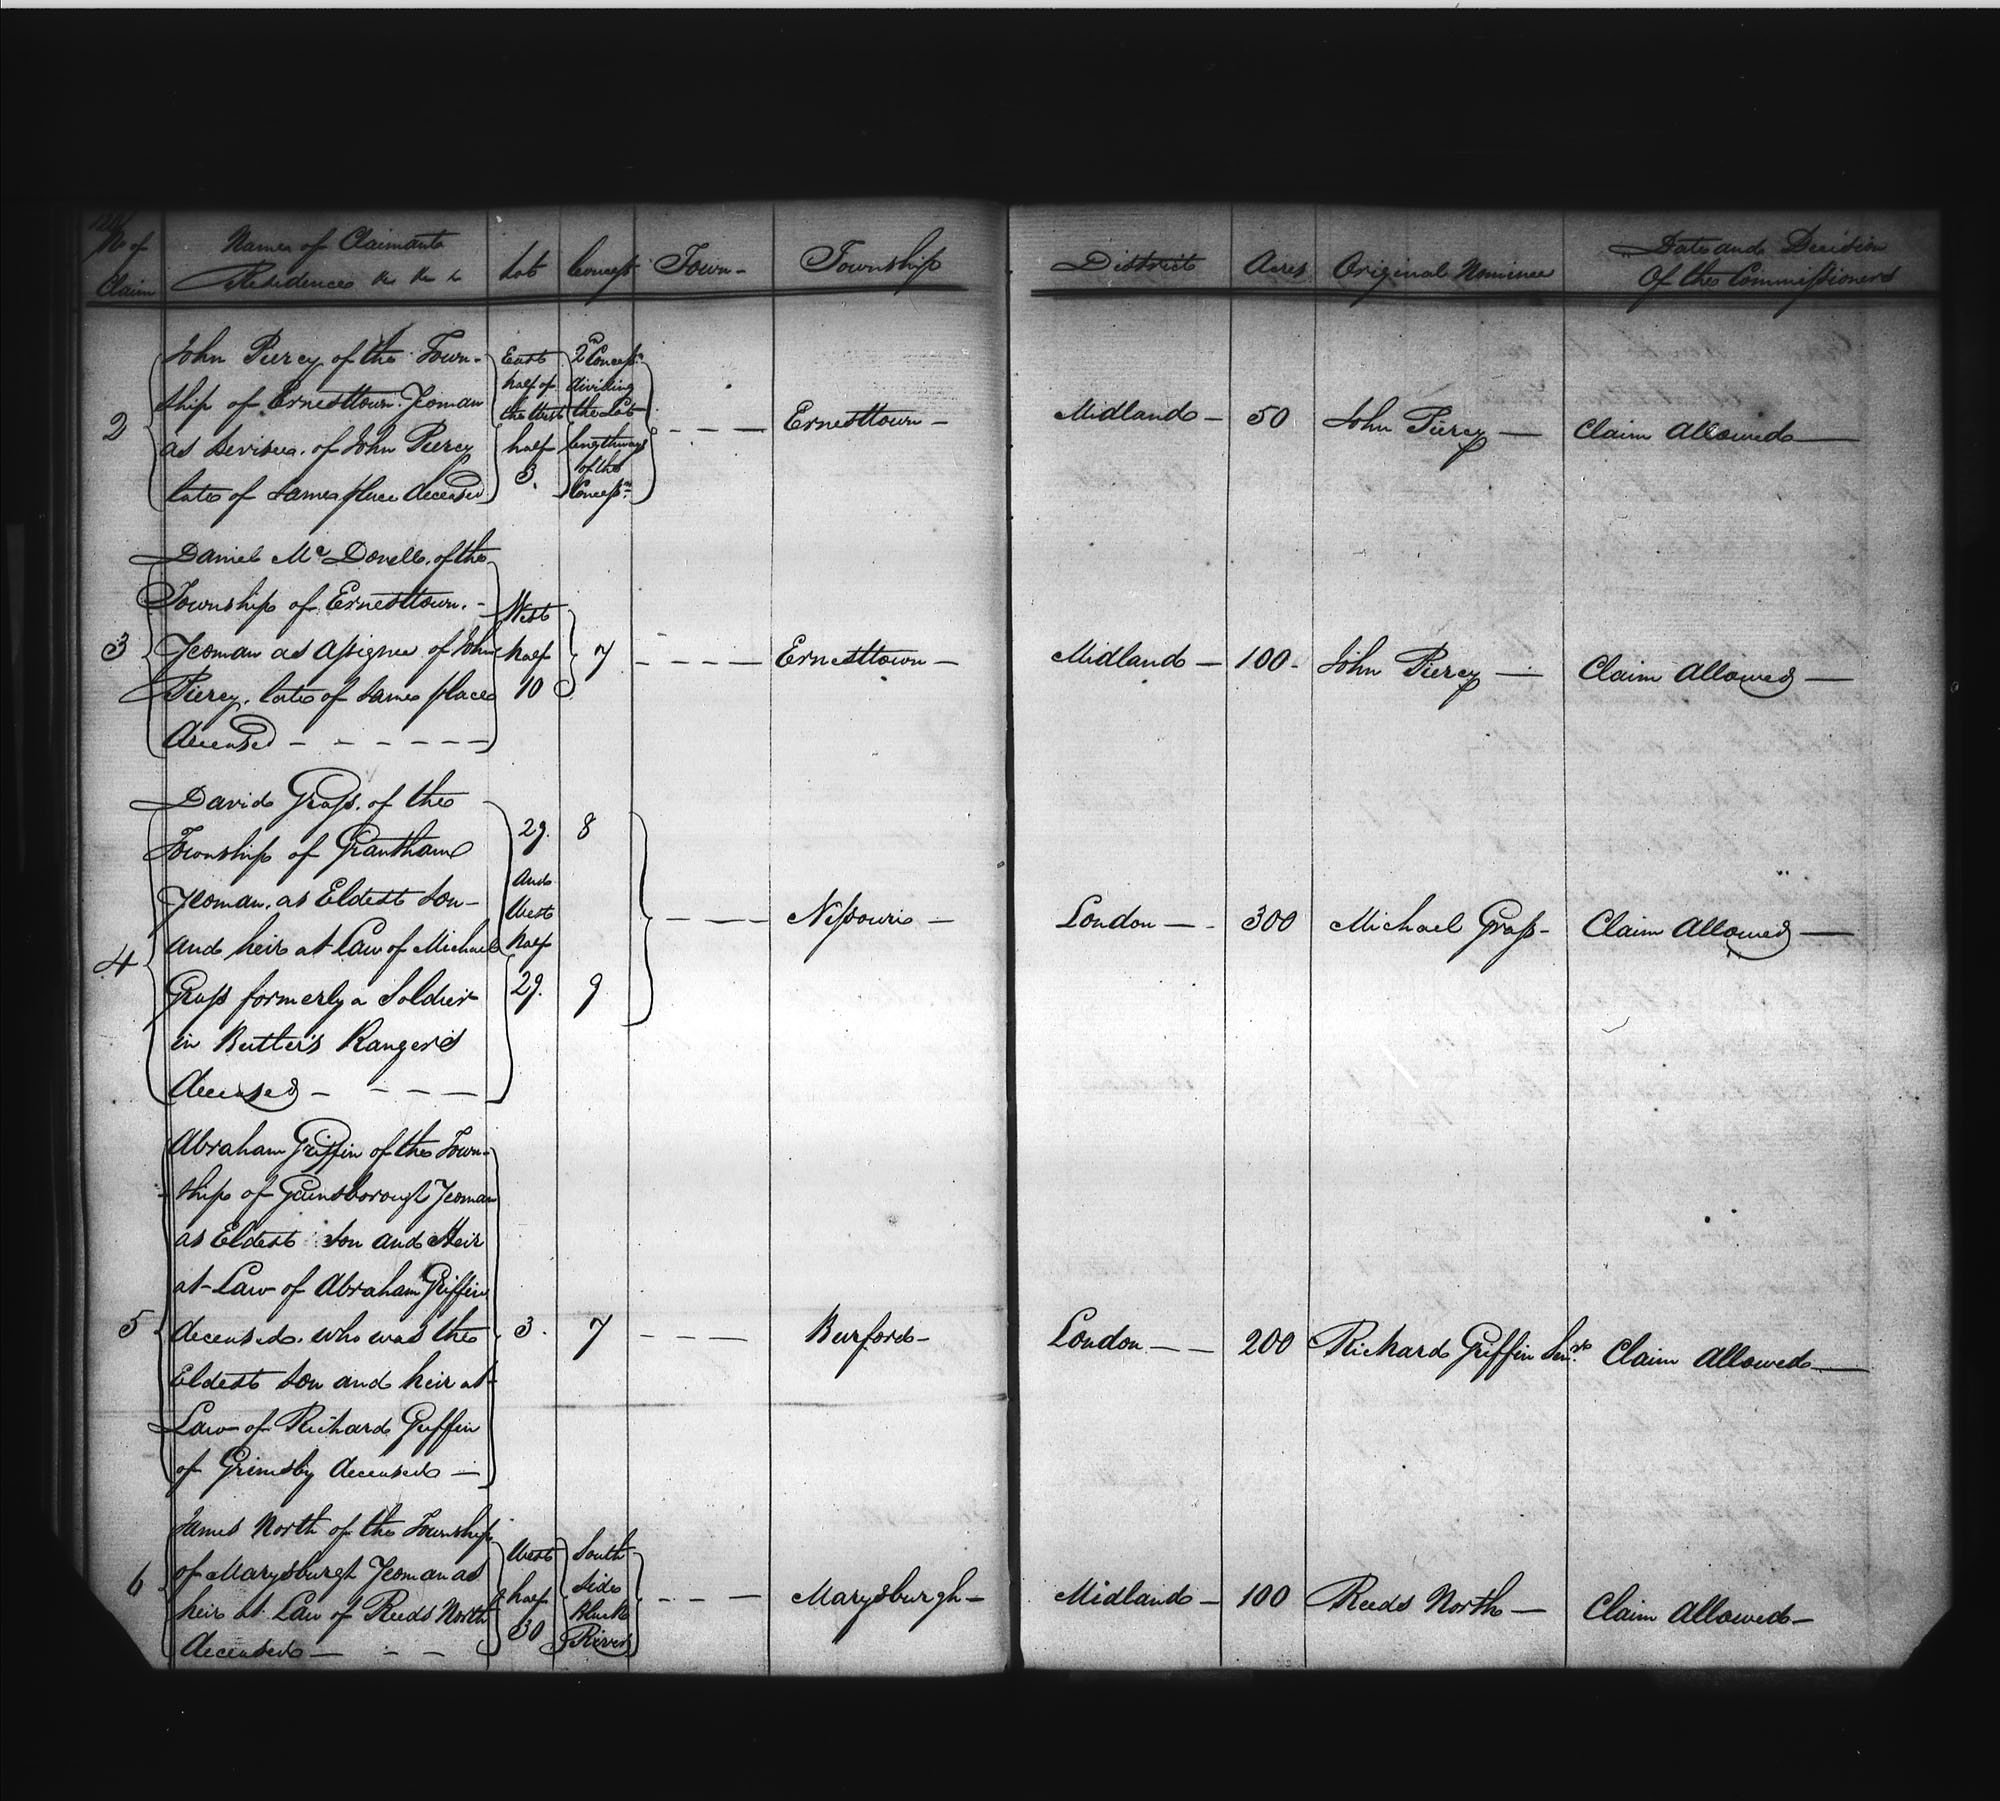 No of
Claim
Names of Claimants
Residences &c &c &c
Lot
Concessn
Town -
Township
District
Acres
Original Nominee
Date and Decision
Of the Commissioners
2
John Piercy of the Town-
ship of Ernesttown Yeoman
as Devisee of John Piercy
late of same place deceased
East
half of
the West
half
3.
2n Concessn
dividing
the Lot
lengthways
of the
Concessn
Ernesttown -
Midland -
50
John Piercy -
Claim Allowed -
3
Daniel Mc Donell of the
Township of Ernesttown. -
Yeoman as Assignee of John
Piercy, late of same place
deceased - - - - - -
West
half
10
7
Ernesttown -
Midland -
100 -
John Piercy -
Claim Allowed -
4
David Grass. of the
Township of Grantham
Yeoman. as Eldest Son -
and heir at Law of Michael
Grass formerly a Soldier
in Butler's Rangers
deceased - - - -
29.
And
West
half
29.
8
9
Nissouri -
London - -
300
Michael Grass -
Claim Allowed -
5
Abraham Griffin of the Town-
ship of Gainsborough Yeoman
as Eldest Son and Heir
at-Law of Abraham Griffin
deceased. who was the
Eldest Son and heir at-
Law of Richard Griffin
of Grimsby deceased -
3.
7
Burford -
London - -
200
Richard Griffin Senr.
Claim Allowed -
6
James North of the Township
of Marysburgh Yeoman as
heir at Law of Reeds North
deceased - - -
West
half
30
South
side
Black
River
Marysburgh -
Midland -
100
Reeds North -
Claim Allowed -